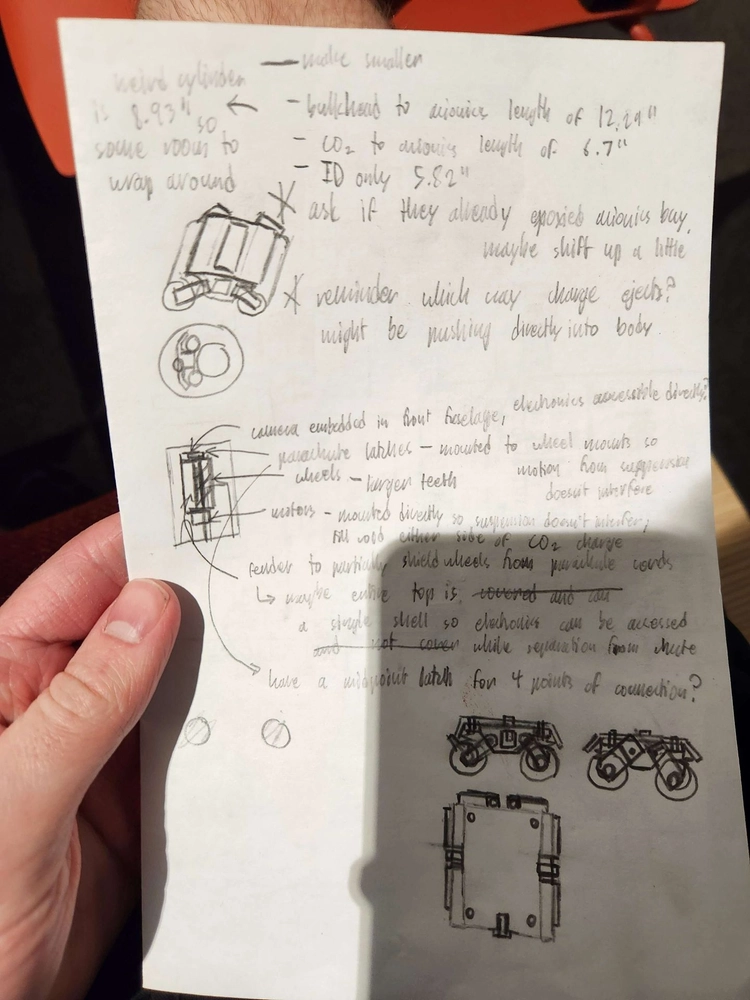 — make smaller
weird cylinder
is 8.93" so
some room to
wrap around
- bulkhead to avionics length of 12.29"
- CO2 to avionics length of 6.7"
- ID only 5.82"
* ask if they already epoxied avionics bay,
maybe shift up a little
* reminder which way charge ejects?
might be pushing directly into body
camera embedded in front fuselage, electronics accessible directly?
parachute latches - mounted to wheel mounts so
motion from suspension
doesn't interfere
wheels - larger teeth
motors - mounted directly so suspension doesn't interfer;
either side of CO2 charge
fender to partially shield wheels from parachute cords
↳ maybe entire top is covered and can
a single shell so electronics can be accessed
and not cover while separation from chute
have a midpoint latch for 4 points of connection?